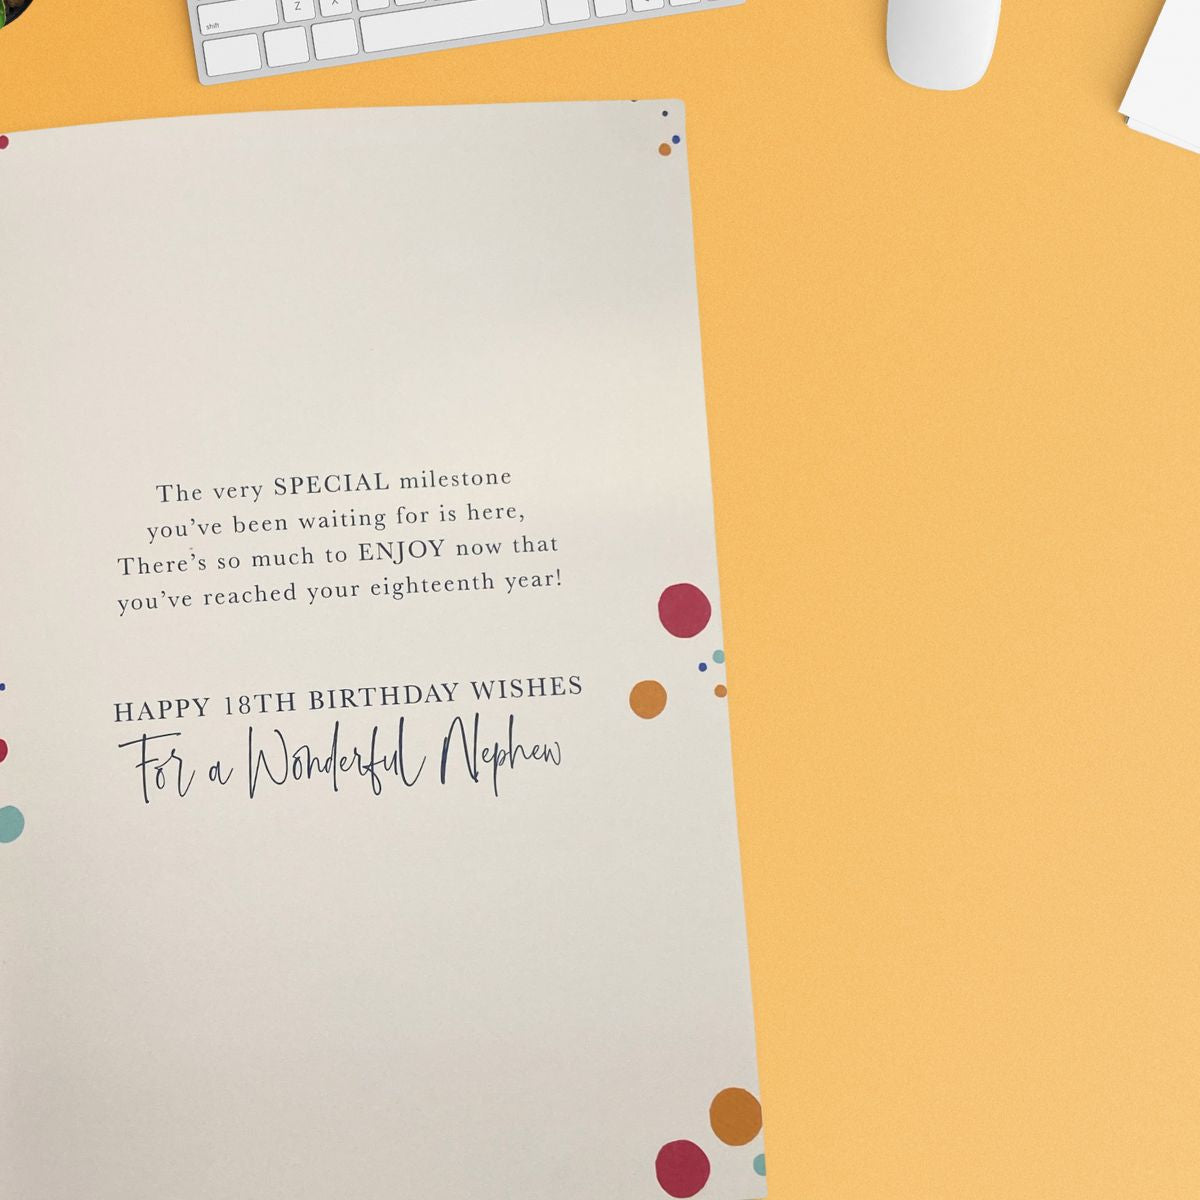 shift
Z
X
The very SPECIAL milestone
you've been waiting for is here,
There's so much to ENJOY now that
you've reached your eighteenth year!
HAPPY 18TH BIRTHDAY WISHES
For a Wonderful Nephew